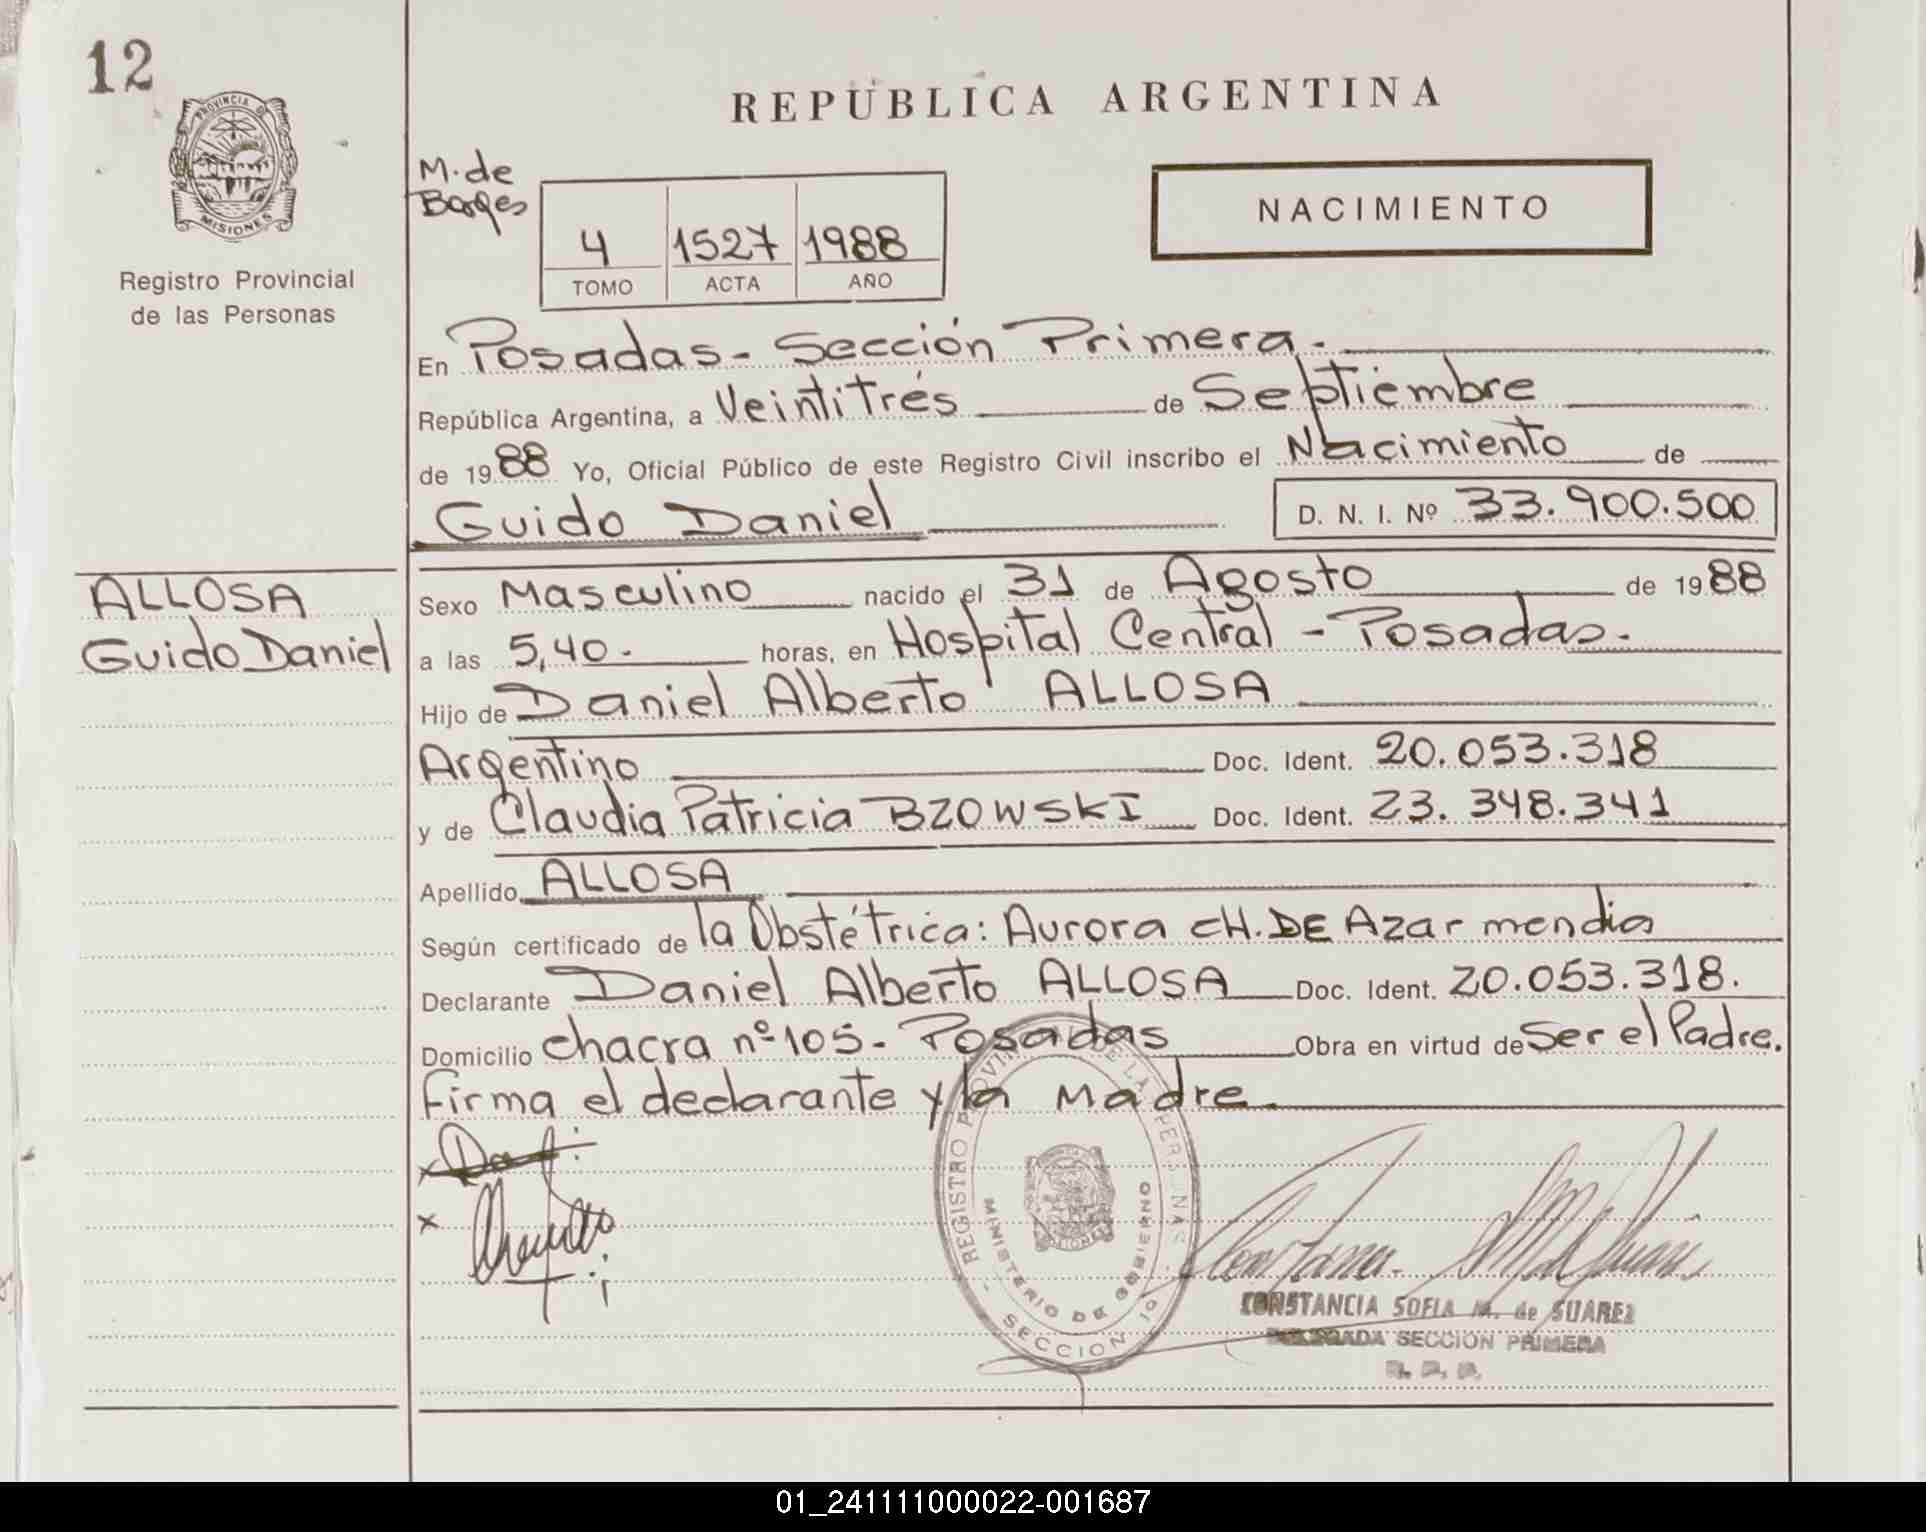 12
PROVINCIA DE
MISIONES
Registro Provincial
de las Personas
REPUBLICA ARGENTINA
M. de
Borges
4 1527 1988
TOMO ACTA AÑO
NACIMIENTO
En Posadas - Sección Primera.
República Argentina, a Veintitrés de Septiembre
de 1988 Yo, Oficial Público de este Registro Civil inscribo el Nacimiento de
Guido Daniel D. N. I. Nº 33.900.500
ALLOSA
Guido Daniel
Sexo Masculino nacido el 31 de Agosto de 1988
a las 5,40. horas, en Hospital Central - Posadas.
Hijo de Daniel Alberto ALLOSA
Argentino Doc. Ident. 20.053.318
y de Claudia Patricia BZOWSKI Doc. Ident. 23.348.341
Apellido ALLOSA
Según certificado de la Obstétrica: Aurora CH. DE Azarmendia
Declarante Daniel Alberto ALLOSA Doc. Ident. 20.053.318.
Domicilio chacra nº 105 - Posadas Obra en virtud de Ser el Padre.
firma el declarante y la Madre.
x
x
- REGISTRO PROVINCIAL DE LAS PERSONAS -
MINISTERIO DE GOBIERNO
SECCION 1º
CONSTANCIA SOFIA M. de SUAREZ
DELEGADA SECCION PRIMERA
01_241111000022-001687